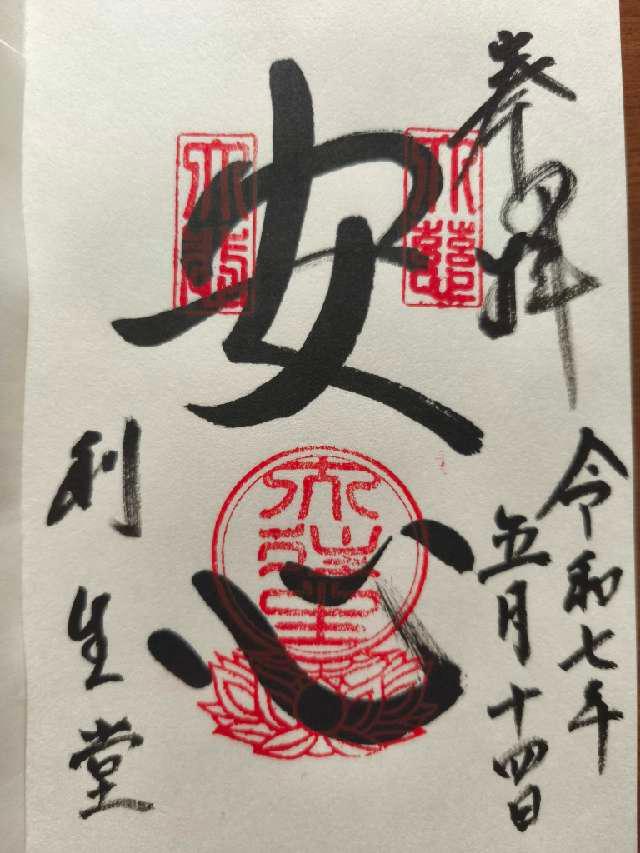 奉拝
令和七年
五月十四日
安心
利生堂